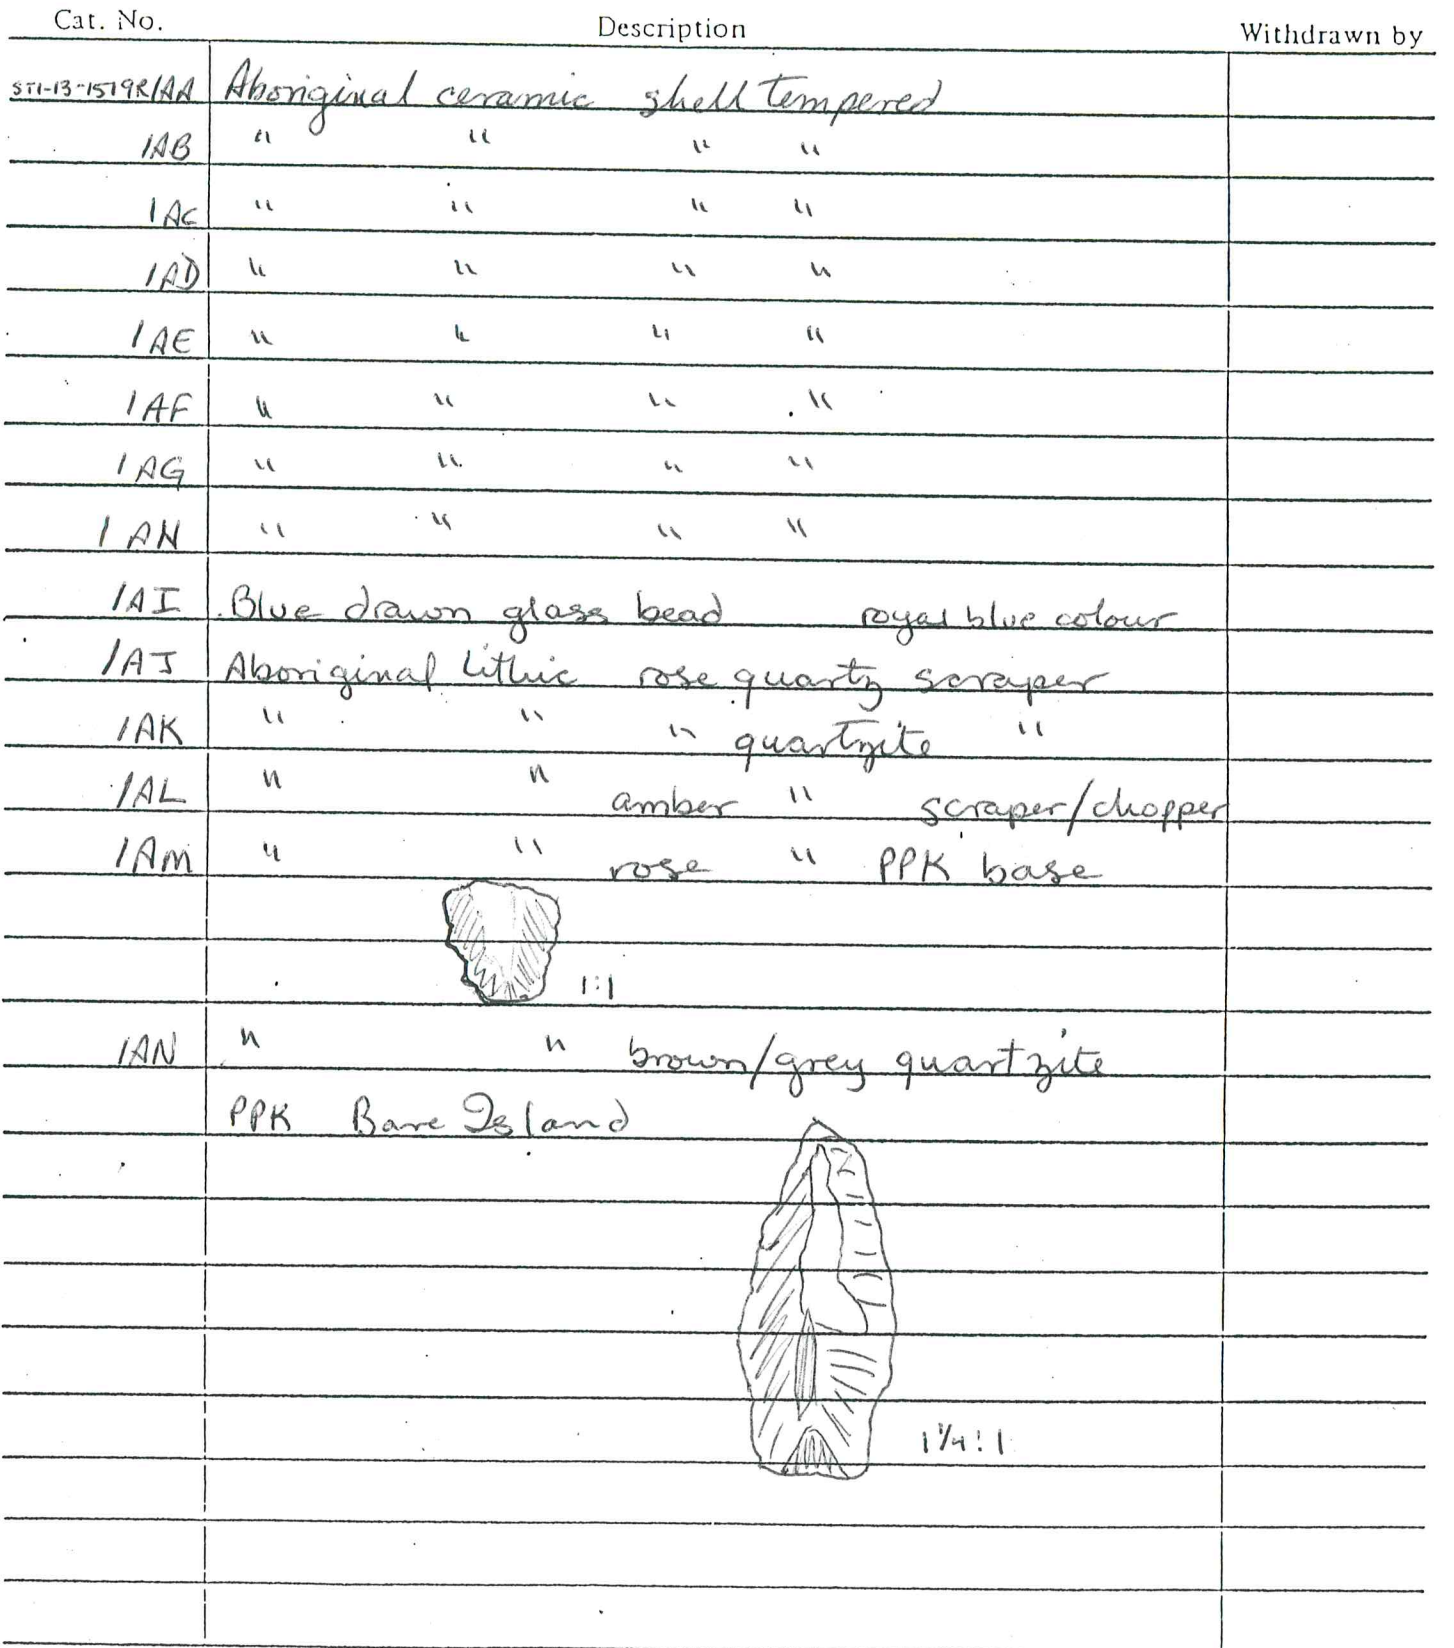 Cat. No. Description Withdrawn by
ST1-13-1519R/AA Aboriginal ceramic shell tempered
/AB " " " "
/AC " " " "
/AD " " " "
/AE " " " "
/AF " " " "
/AG " " " "
/AH " " " "
/AI Blue drawn glass bead royal blue colour
/AJ Aboriginal lithic rose quartz scraper
/AK " " " quartzite "
/AL " " amber " scraper/chopper
/AM " " rose " PPK base
1:1
/AN " " brown/grey quartzite
PPK Bare Island
1 1/4:1